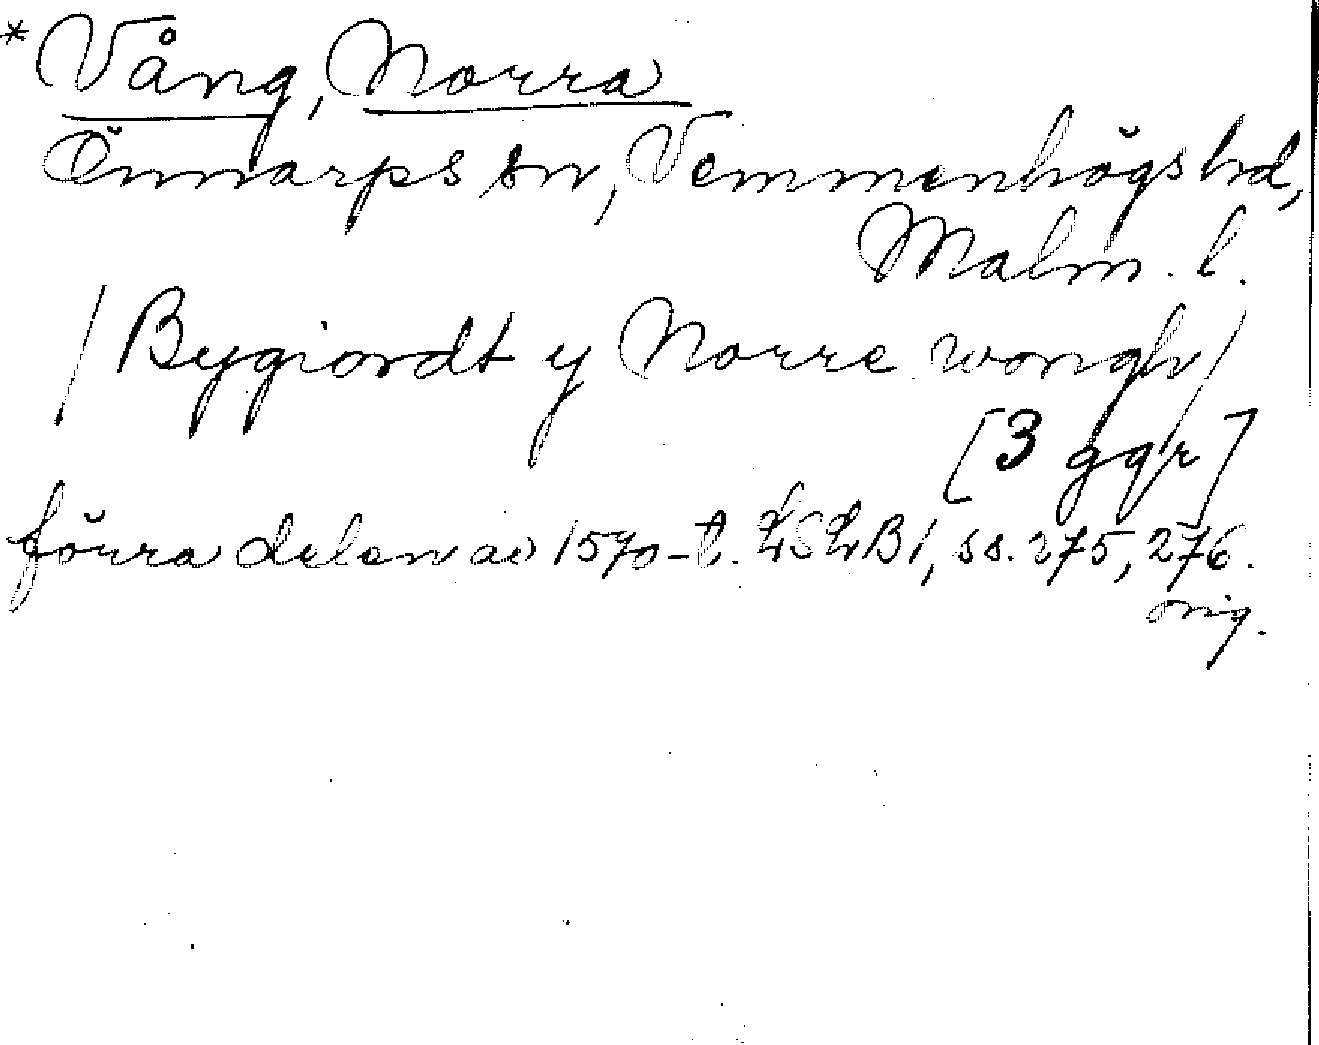 * Vång, Norra
Önnarps sn, Vemmenhögs hd,
Malm. l.
/ Bygiordt y Norre wongh /
[3 ggr]
förra delen av 1570-t. LSLB1, ss. 275, 276.
orig.